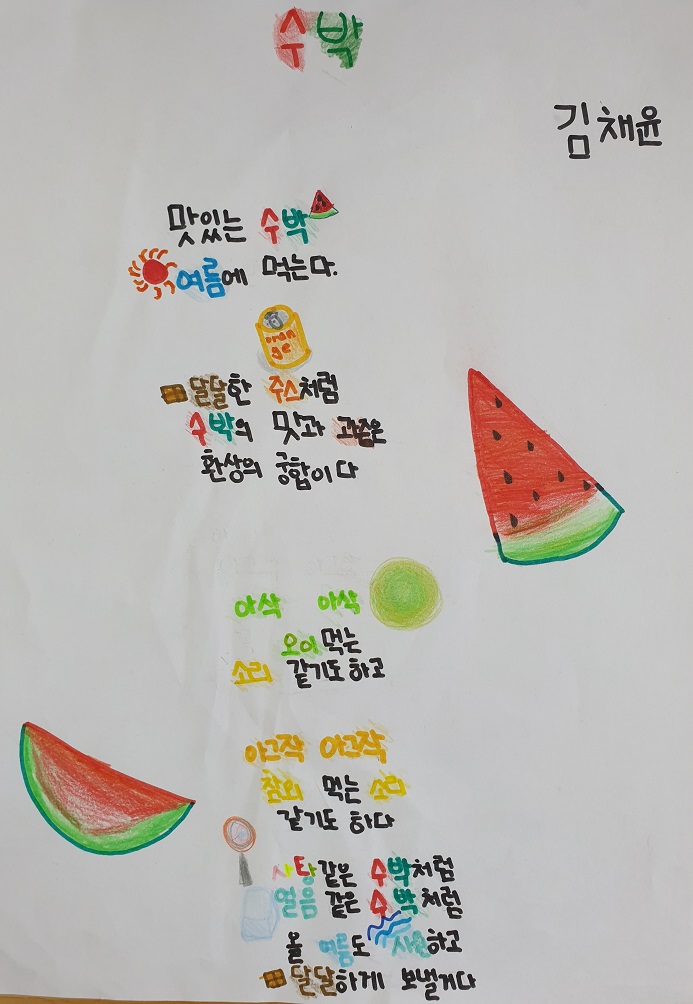 수박
김채윤
맛있는 수박
여름에 먹는다.
oran
ge
달달한 주스처럼
수박의 맛과 과즙은
환상의 궁합이다
아삭 아삭
오이 먹는
소리 같기도 하고
아그작 아그작
참외 먹는 소리
같기도 하다
사탕 같은 수박처럼
얼음 같은 수박처럼
올 여름도 시원하고
달달하게 보낼거다